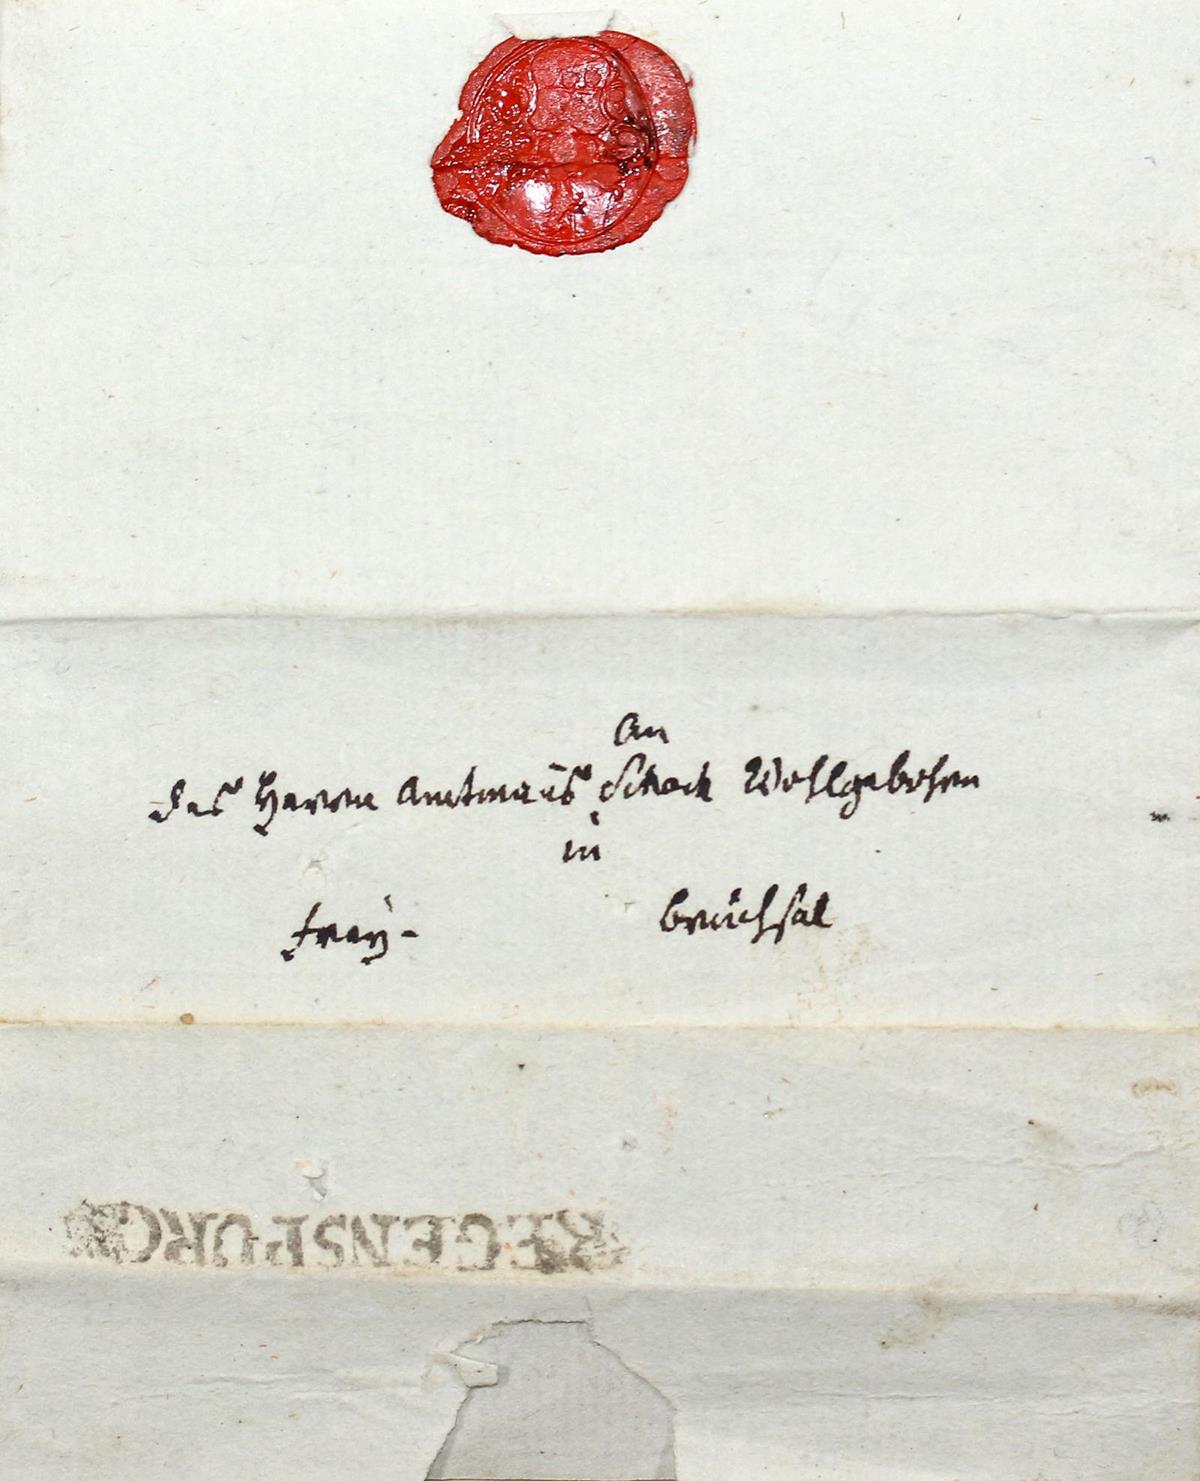 An
des Herrn Amtmans Schoch Wohlgebohrn
in
frey- bruchsal
REGENSPURG